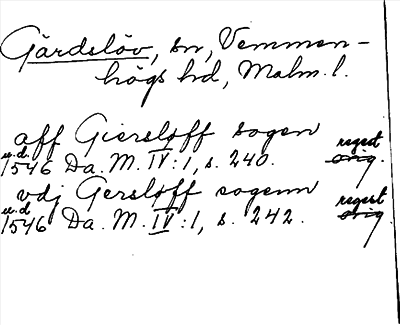 Gärdslöv, sn, Vemmen-
högs hd, Malm. l.
aff Giersløff sogen
u.d. 1546 Da. M. IV:1, s. 240. regest orig.
vdj Gersløff sogenn
u.d 1546 Da. M. IV:1, s. 242. regest orig.